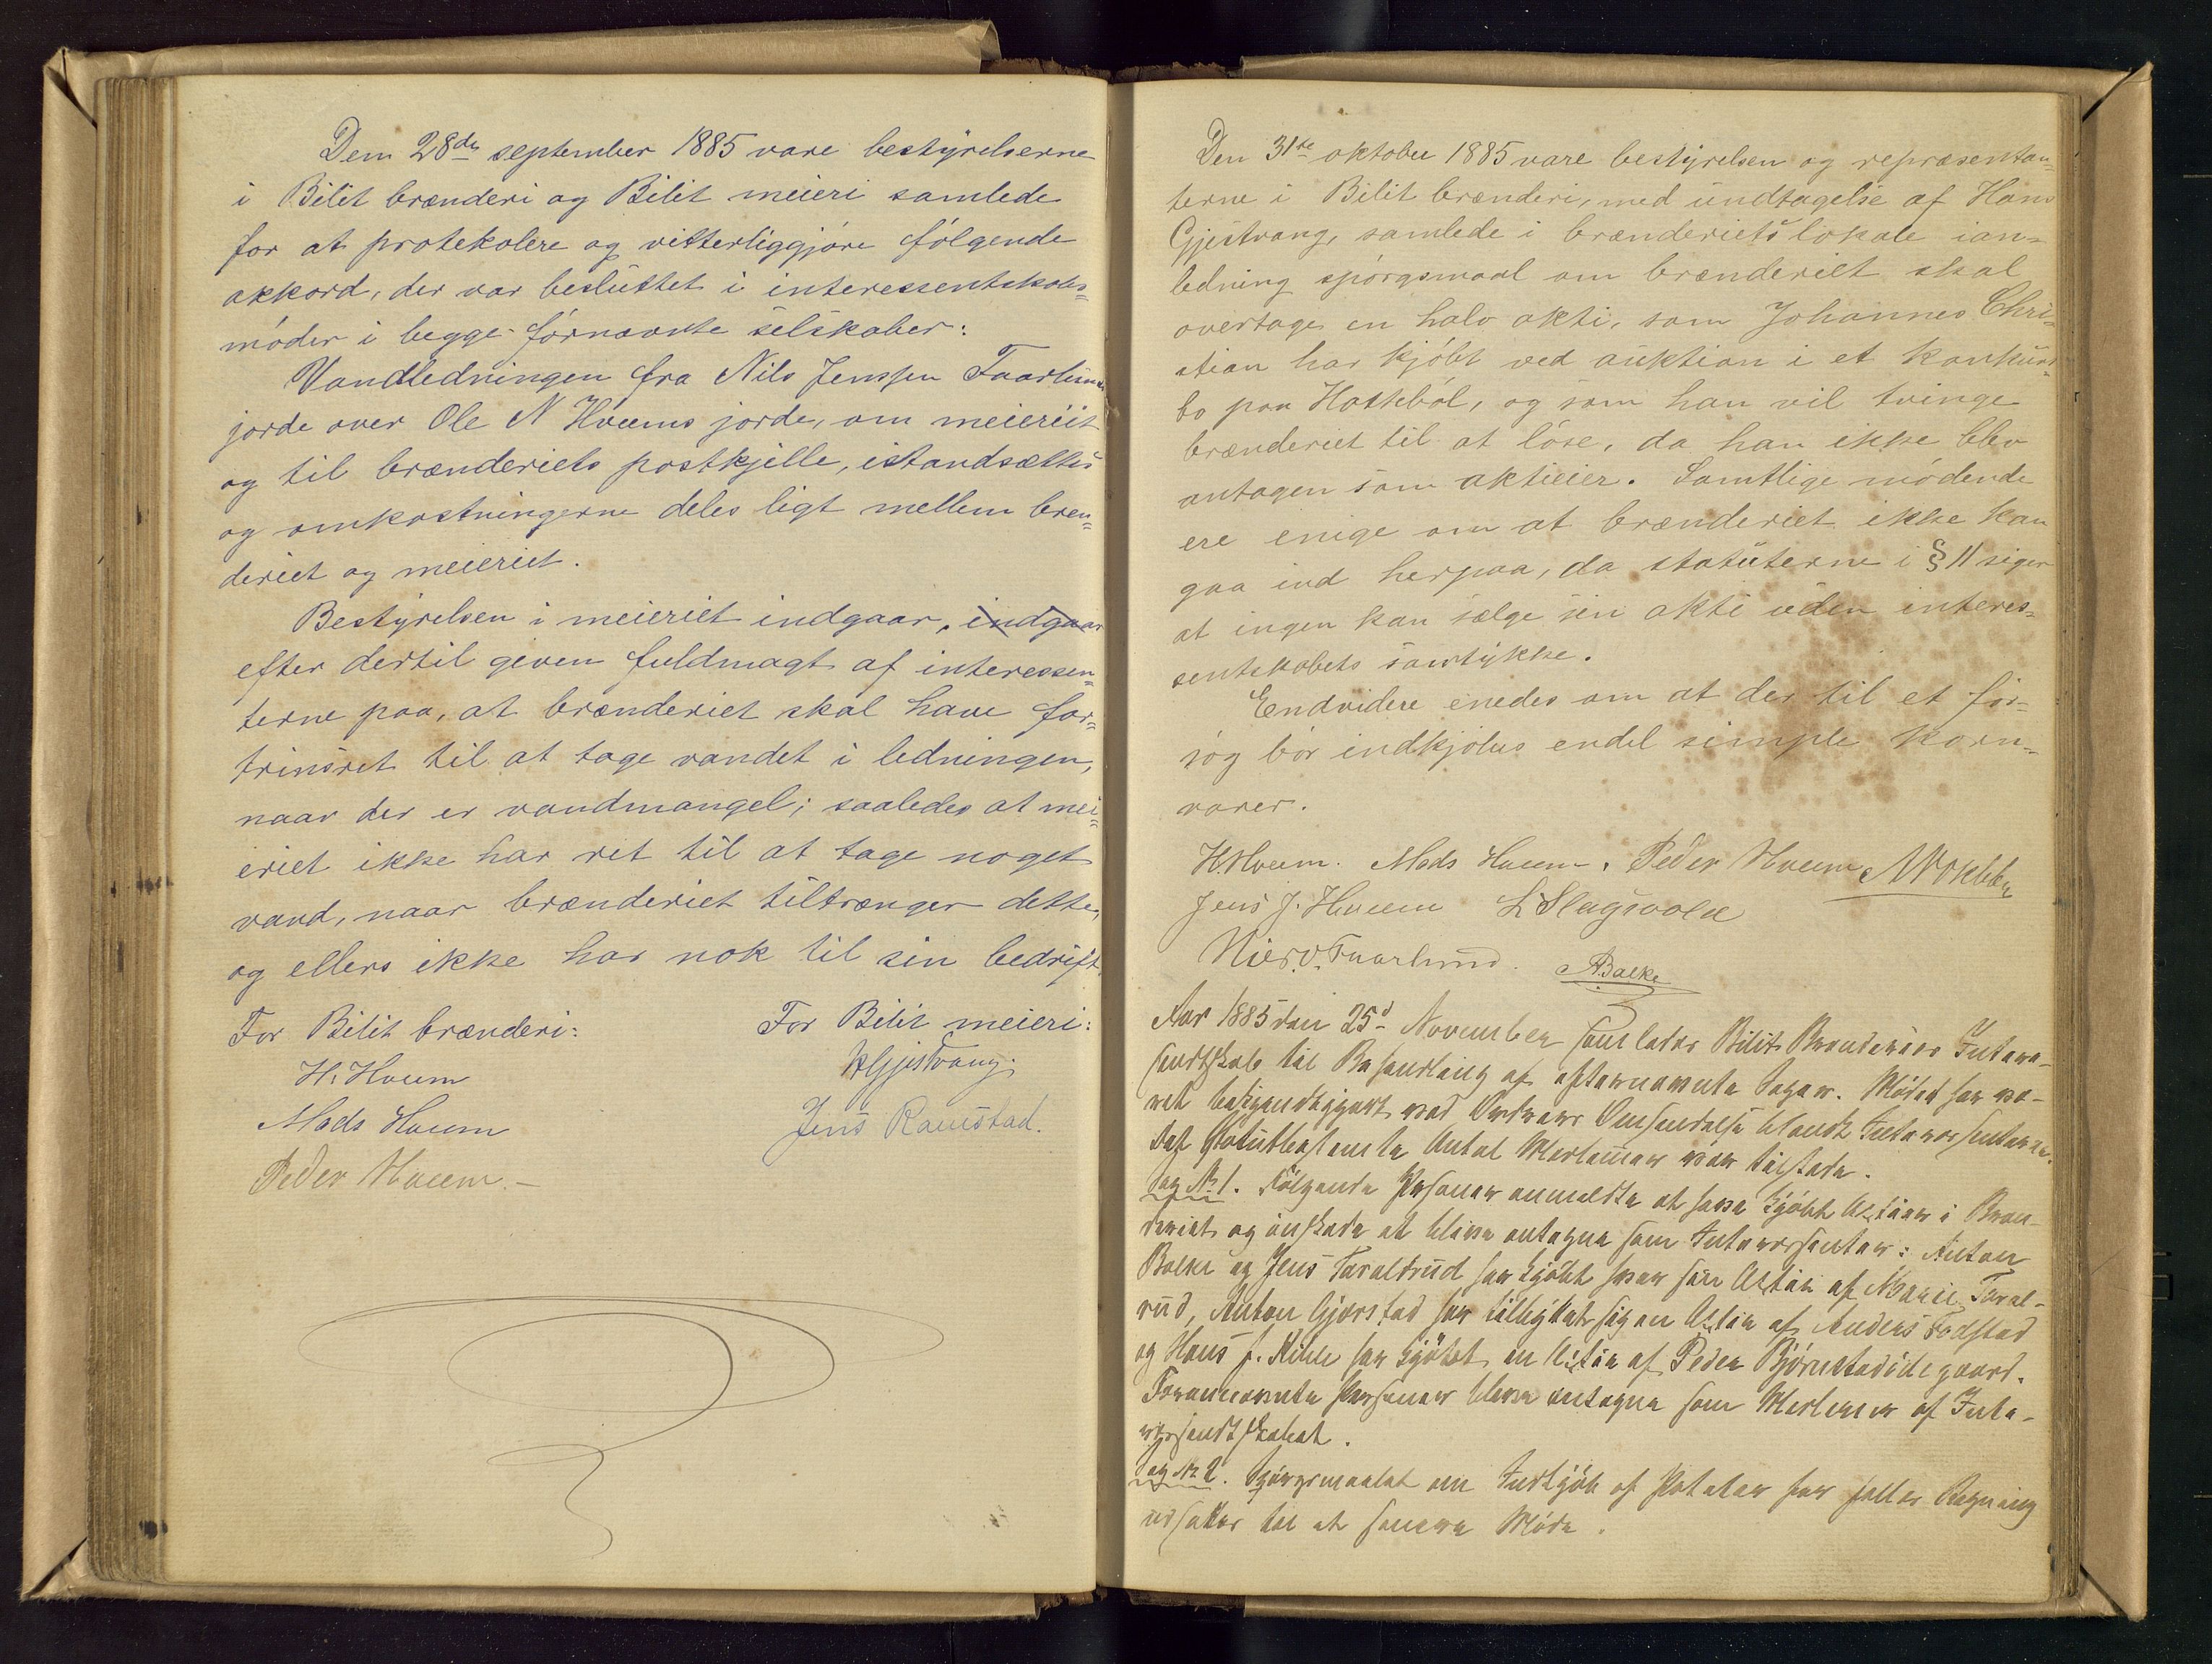 Den 28de september 1885 vare bestyrelserne
i Bilit brænderi og Bilit meieri samlede
for at protokolere og vitterliggjøre følgende
akkord, der var besluttet i interessentskabs=
møder i begge førnævnte selskaber:
Vandledningen fra Nils Jenssen Faarlunds
jorde over Ole N Hveems jorde, om meieriet
og til brænderiets postkjelle, istandsættes
og omkostningerne deles ligt mellem bræn=
deriet og meieriet.
Bestyrelsen i meieriet indgaar, indgaar
efter dertil given fuldmagt af interessen=
terne paa, at brænderiet skal have for=
trinsret til at tage vandet i ledningen,
naar der er vandmangel; saaledes at mei=
eriet ikke har ret til at tage noget
vand, naar brænderiet tiltrænger dette,
og ellers ikke har nok til sin bedrift.
For Bilit brænderi:
H. Hveem
Mads Hveem
Peder Hveem.-
For Bilit meieri:
HGjestvang.
Jens Ramstad.
Den 31te oktober 1885 vare bestyrelsen og repræsentan=
terne i Bilit brænderi, med undtagelse af Hans
Gjestvang, samlede i brænderiets lokale ian=
ledning spørgsmaal om brænderiet skal
overtage en halv akti, som Johannes Chri=
stian har kjøbt ved auktion i et konkurs=
bo paa Hotkebøl, og som han vil tvinge
brænderiet til at løse, da han ikke blev
antagen som aktieier. Samtlige mødende
ere enige om at brænderiet ikke kan
gaa ind herpaa, da statuterne i § 11 siger
at ingen kan sælge sin akti uden interes=
sentskabets samtykke.
Endvidere enedes om at der til et for=
søg bør indkjøbes endel simple korn=
varer.
H.Hveem. Mads Hveem. Peder Hveem
Jens J. Hveem L Slagsvold
Faarlund. A.Balke
Aar 1885 den 25d November samledes Bilit Brænderies Interes-
sentskab til Behandling af efternævnte Sager. Mødet har væ-
ret bekjendtgjort ved Ordførers Omsendelse blandt Interessenterne.
Det statutbestemte Antal Medlemmer var tilstede.
Sag No 1. Følgende Personer anmeldte at have kjøbt Aktier i Bræn-
deriet og ønskede at blive antagne som Interessenter: Anton
Balke og Jens Taraldrud har kjøbt hver sin Aktie af Marie Taral-
rud, Anton Gjørstad har tilbyttet sig en Aktie af Anders Fodstad
og Hans J. Kihle har kjøbt en Aktie af Peder Bjørnstadødegaard.
Forannævnte Personer bleve antagne som Medlemer af Inte-
ressentskabet.
Sag No 2. Spørgsmaalet om Indkjøb af Poteter for fælles Regning
udsattes til et senere Møde.